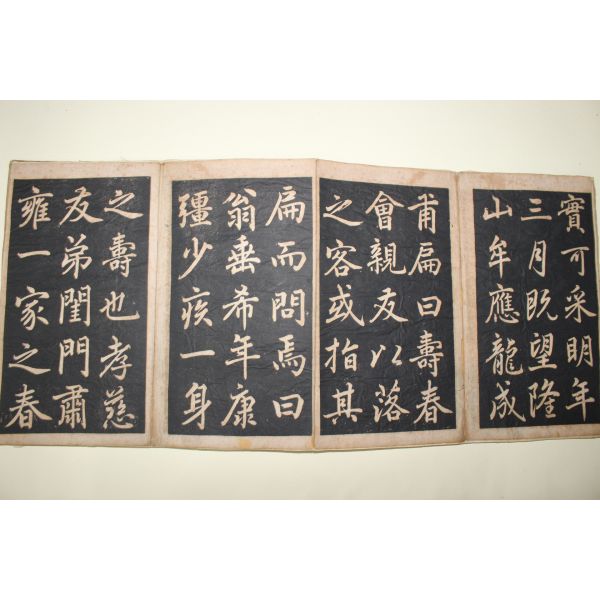 實可采明年
三月既望隆
山牟應龍成
甫扁曰壽春
會親友以落
之客或指其
扁而問焉曰
翁垂希年康
彊少疾一身
之壽也孝慈
友弟閨門肅
雍一家之春